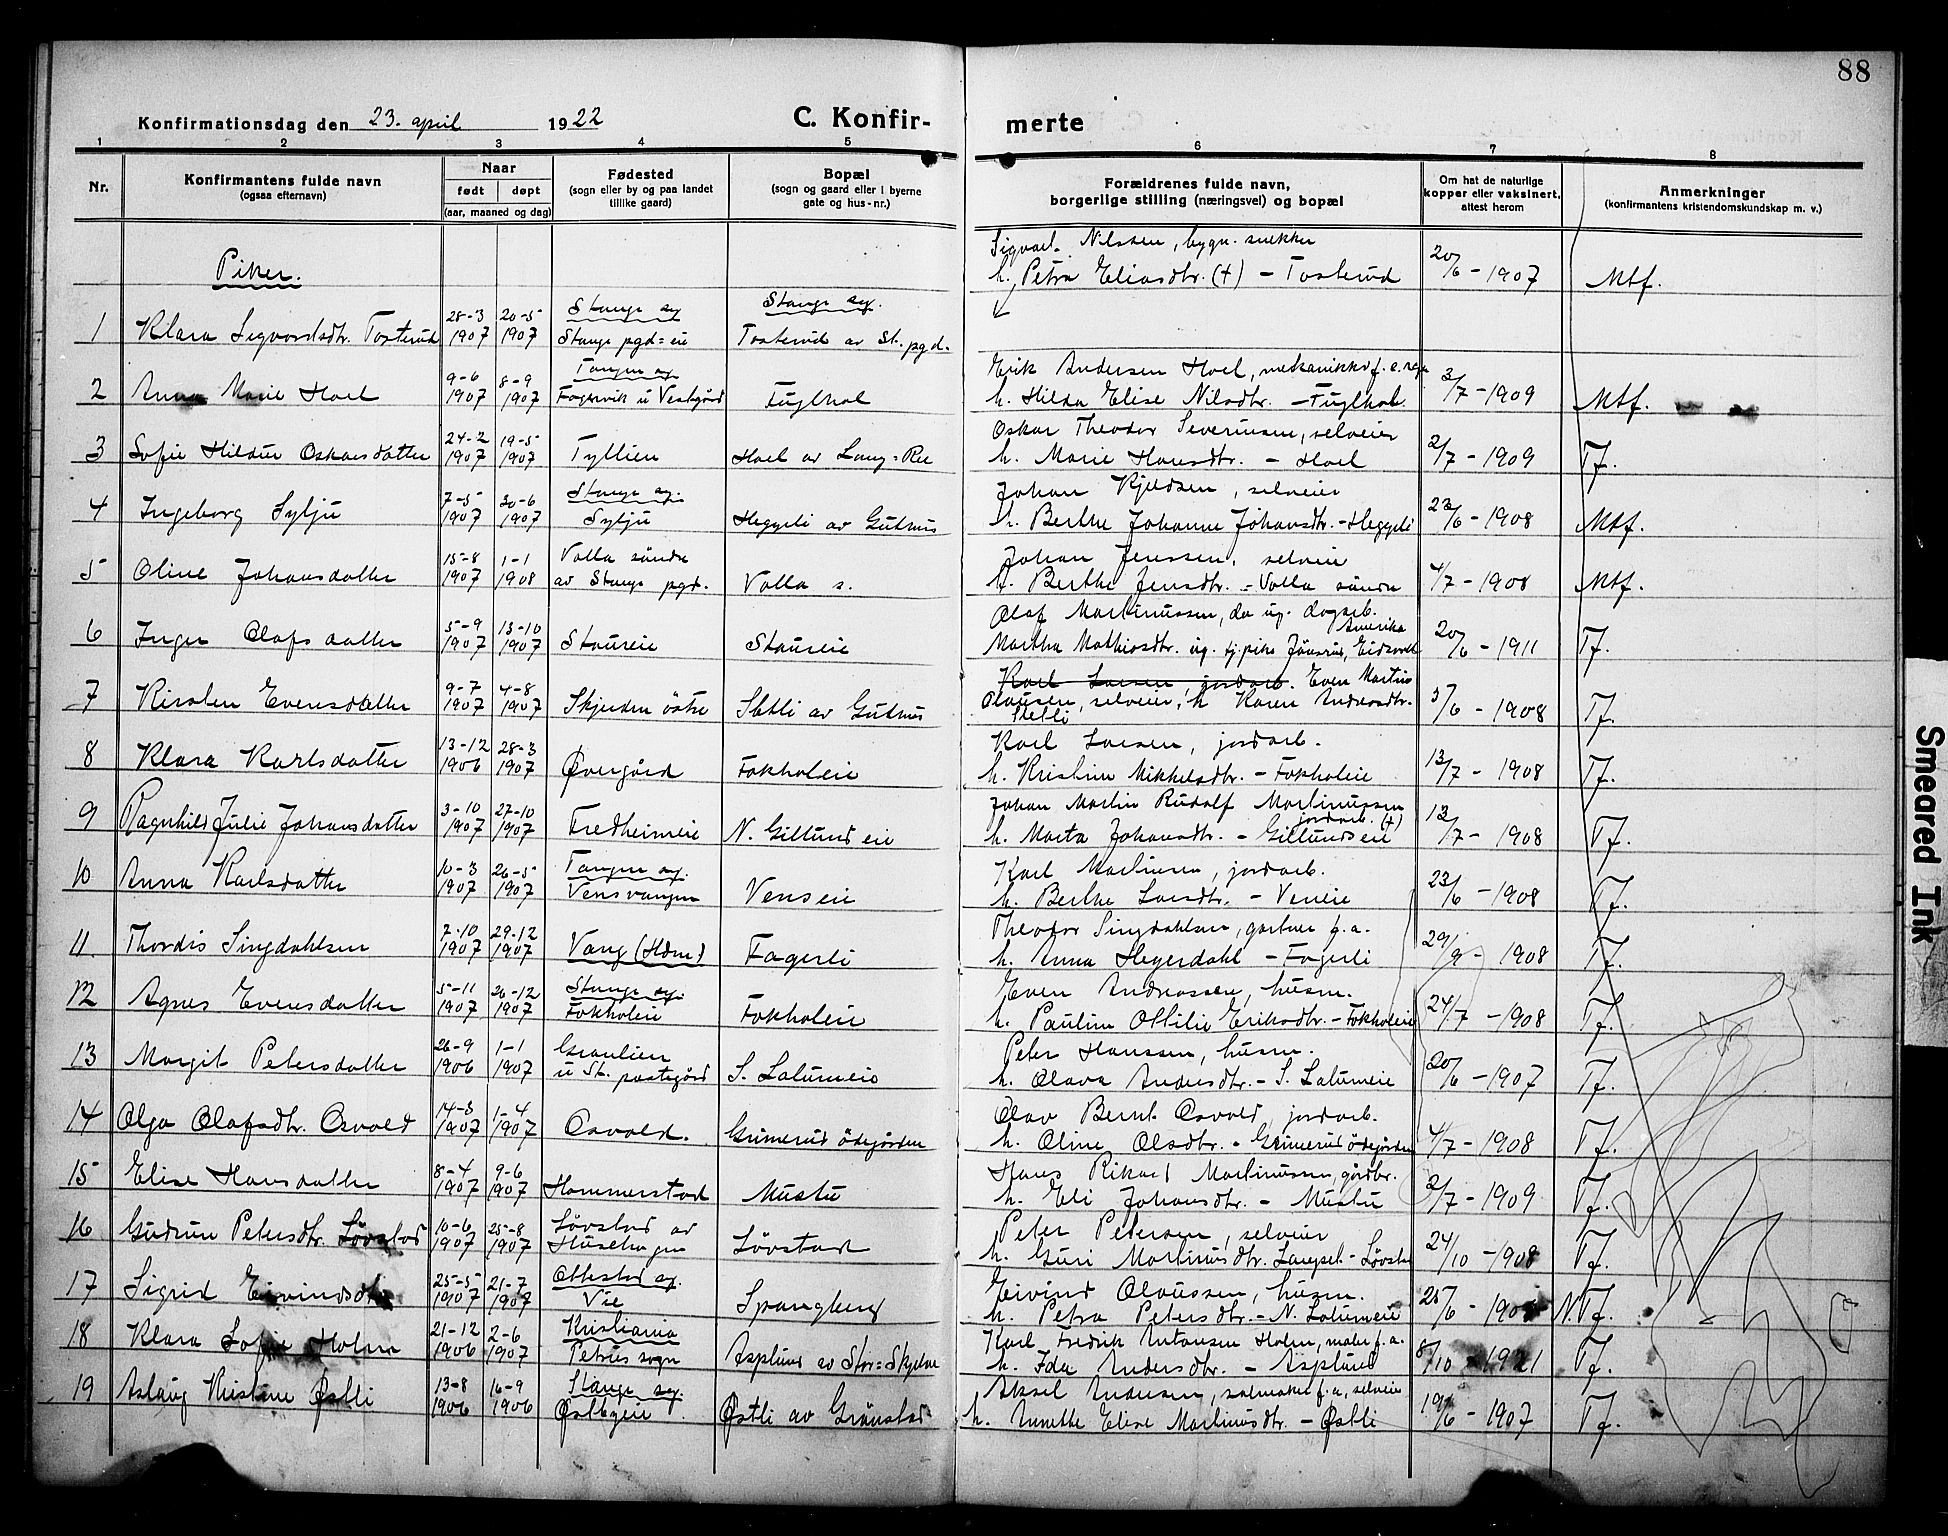 88
Konfirmationsdag den 23. april 1922
C. Konfir-
merte
1 2 3 4 5 6 7 8
Nr.
Konfirmantens fulde navn
(ogsaa efternavn)
Naar
født døpt
(aar, maaned og dag)
Fødested
(sogn eller by og paa landet
tillike gaard)
Bopæl
(sogn og gaard eller i byerne
gate og hus-nr.)
Forældrenes fulde navn,
borgerlige stilling (næringsvei) og bopæl
Om hat de naturlige
kopper eller vaksinert,
attest herom
Anmerkninger
(konfirmantens kristendomskundskap m. v.)
Piker.
Nilssen, bygn. snekker
h. Petra Eliasdtr. (+) - Tosterud 20/6 - 1907 Mtf.
28-3 20-5 Stange sg Stange sg.
1 Klara Sigvardsdtr. Tosterud 1907 1907 Stange pgd=eie Tosterud av St. pgd.
9-6 8-9 Tangen sg Erik Andersen Hoel, mekaniker f. e. regn
2 Anna Marie Hoel 1907 1907 Fagervik u Vestgård Fuglhol h. Hilda Elise Nilsdtr. - Fuglhol. 3/7 - 1909 Mtf.
24-2 19-5 Oskar Theodor Severinsen, selveier
3 Sofie Hildur Oskarsdatter 1907 1907 Tyllien Hoel av Lang=Ree h. Marie Hansdtr. - Hoel 2/7 - 1909 Tf.
7-5 30-6 Stange sg. Johan Kjeldsen, selveier
4 Ingeborg Sylju 1907 1907 Sylju Heggeli av Gutmus h. Berthe Johanne Johansdtr. - Heggeli 23/6 - 1908 Mtf.
15-8 1-1 Volla søndre Johan Jenssen, selveier
5 Oline Johansdatter 1907 1908 av Stange pgd. Volla s. h. Berthe Jensdtr. - Volla søndre 4/7 - 1908 Mtf.
5-9 13-10 Olaf Martinussen, da ug. dagarb. Amerika
6 Inger Olafsdatter 1907 1907 Staureie Staureie Martha Mathiasdtr. ug. tj.pike Jønsrud, Eidsvoll 20/6 - 1911 Tf.
9-7 4-8 Karl Larsen, jordarb. Even Martin
7 Kirsten Evensdatter 1907 1907 Skjerden østre Sletli av Gutmus Olaussen, selveier, h Karen Andreasdtr. Sletli 3/6 - 1908 Tf.
13-12 28-3 Karl Larsen, jordarb.
8 Klara Karlsdatter 1906 1907 Øvergård Fokholeie h. Kristine Mikkelsdtr. - Fokholeie 13/7 - 1908 Tf.
3-10 27-10 Johan Martin Rudolf Martinussen jordarb. (+)
9 Ragnhild Julie Johansdatter 1907 1907 Fredheimeie N. Gillund eie h. Marta Johansdtr. - Gillundseie 13/7 - 1908 Tf.
10-3 26-5 Tangen sg. Karl Martinsen, jordarb.
10 Anna Karlsdatter 1907 1907 Vensvangen Venseie h. Berthe Larsdtr. - Venseie 23/6 - 1908 Tf.
7-10 29-12 Theodor Singdahlsen, gartner f. a.
11. Thordis Singdahlsen 1907 1907 Vang (Hdm) Fagerli h. Anna Hegerdahl - Fagerli 29/9 - 1908 Tf.
5-11 26-12 Stange sg. Even Andreassen, husm.
12 Agnes Evensdatter 1907 1907 Fokholeie Fokholeie h. Pauline Ottilie Eriksdtr. - Fokholeie 24/7 - 1908 Tf.
26-9 1-1 Granlien Peter Hanssen, husm.
13 Margit Petersdatter 1906 1907 u St. prestegård S. Lalumeie h. Olava Andersdtr. - S. Lalumeie 20/6 - 1907 Tf.
14-3 1-4 Olav Bernt Osvold, jordarb.
14 Olga Olafsdtr. Osvold 1907 1907 Osvold. Grimerud ödegården h. Oline Olsdtr. - Grimerud ödegården 4/7 - 1908 Tf.
8-4 9-6 Hans Rikard Martinussen, gårdbr.
15 Elise Hansdatter 1907 1907 Hommerstad Mustu h. Eli Johansdtr. - Mustu 2/7 - 1909 Tf.
10-6 25-8 Løvstad av Peter Pedersen, selveier
16 Gudrun Petersdtr. Løvstad 1907 1907 Husehagen Løvstad h. Guri Martinusdtr. Langset - Løvstad 24/10 - 1908 Tf.
25-5 21-7 Ottestad sg. Eivind Olaussen, husm.
17 Sigrid Eivindsdtr 1907 1907 Vie Spangberg h. Petra Petersdtr. - N. Lalumeie 25/6 - N. Tf.
21-12 2-6 Kristiania Karl Fredrik Antonsen Holm, maler f. a.
18 Klara Sofie Holm 1906 1907 Petrus sogn Asplund av Stor=Skjelve h. Ida Andersdtr. - Asplund 8/10 - 1921 Tf.
13-8 16-9 Stange sg. Aksel Andersen, salmaker f. a, selveier
19 Aslaug Kristine Østli 1906 1906 Østbyeie Østli av Grønstad h. Annette Elise Martinusdtr. - Østli 19/6 - 1907 Tf.
Smeared Ink